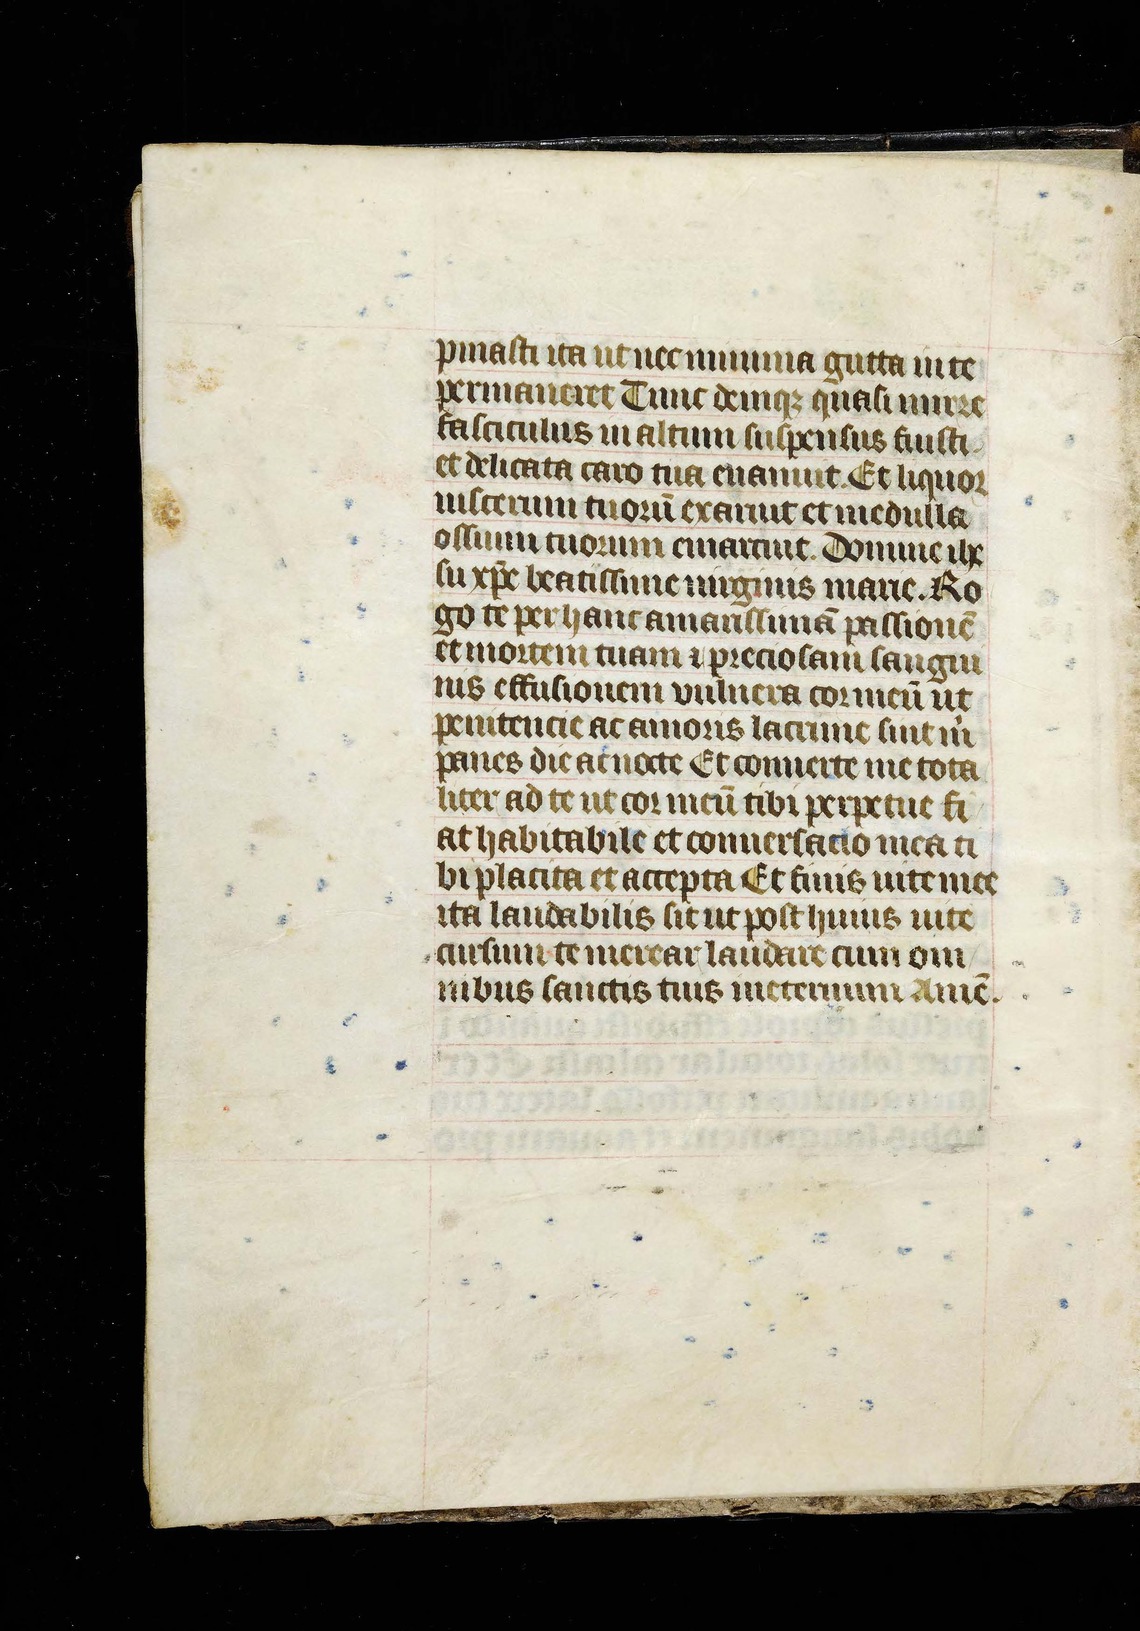 pinasti ita ut nec minima gutta in te
permaneret Tunc demiqȝ quasi mirre
fasciculus in altum suspensus fuisti
et delicata caro tua euanuit. Et liquor
uiscerum tuorū exaruit et medulla
ossium tuorum emarcuit. Domine ihe
su xp̄e beatissime uirginis marie. Ro
go te per hanc amarissimā passionē
et mortem tuam ⁊ preciosam sangui
nis effusionem vulnera cor meū ut
penitencie ac amoris lacrime sint m̄
panes die ac nocte Et conuerte me tota
liter ad te ut cor meū tibi perpetue fi
at habitabile et conuersacio mea ti
bi placita et accepta Et finis uite mee
ita laudabilis sit ut post huius uite
cursum te merear laudare cum om
nibus sanctis tuis ineternum Amē.